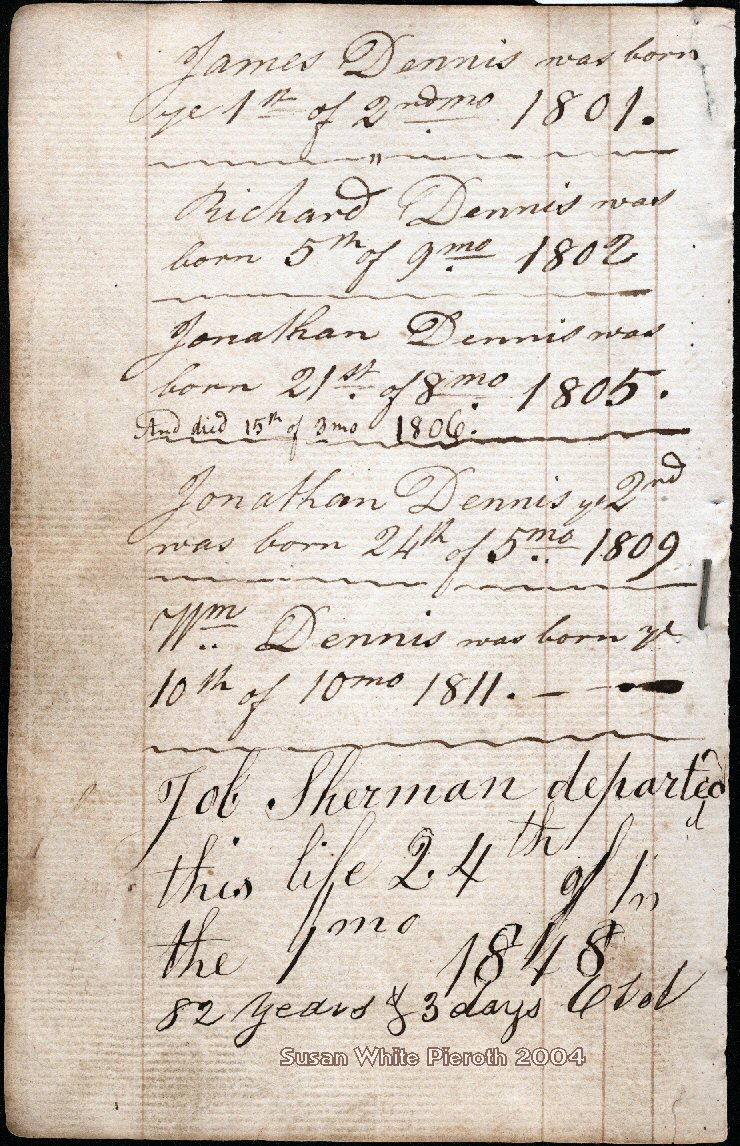 James Dennis was born
ye 1st of 2nd mo 1801.
Richard Dennis was
born 5th of 9mo 1802
Jonathan Dennis was
born 21st of 8mo 1805.
And died 15th of 3mo 1806.
Jonathan Dennis ye 2nd
was born 24th of 5mo 1809
Wm Dennis was born ye
10th of 10mo 1811. — —
Job Sherman departed
this life 24th of In
the 1mo 1848
82 years & 3 days Old
Susan White Pieroth 2004